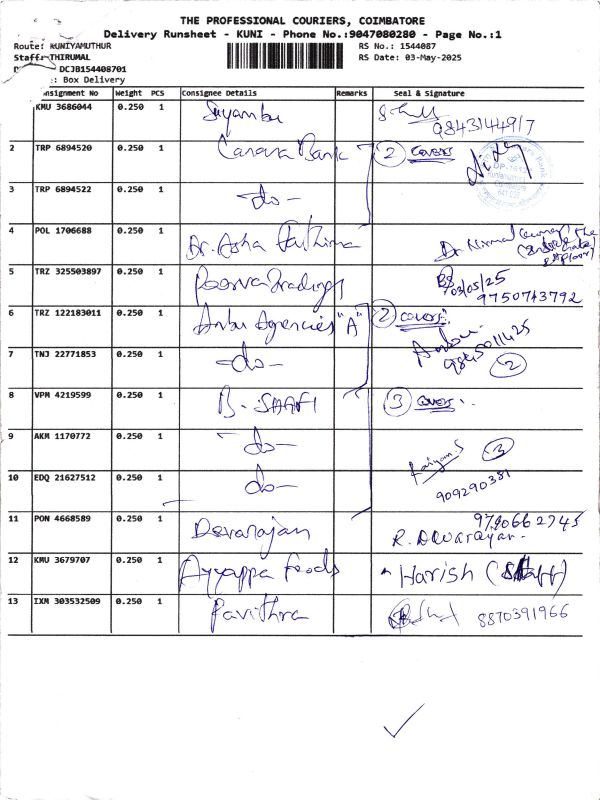 THE PROFESSIONAL COURIERS, COIMBATORE
Delivery Runsheet - KUNI - Phone No.:9047080280 - Page No.:1
Route: KUNIYAMUTHUR
RS No.: 1544087
Staff: THIRUMAL
RS Date: 03-May-2025
DCJB154408701
: Box Delivery
nsignment No Weight PCS Consignee Details Remarks Seal & Signature
KMU 3686044 0.250 1 Suyambu
9843144917
2 TRP 6894520 0.250 1 Canara Bank 2 covers
3 TRP 6894522 0.250 1 -do-
4 POL 1706688 0.250 1 Dr. Asha Fathima Dr Nirmal
5 TRZ 325503897 0.250 1 Poorva Tradings 03/05/25
9750743792
6 TRZ 122183011 0.250 1 Anbu Agencies "A" 2 covers
Anbu
7 TNJ 22771853 0.250 1 -do- 9845011425
2
8 VPM 4219599 0.250 1 B. SHAFI 3 covers
9 AKM 1170772 0.250 1 -do- 3
10 EDQ 21627512 0.250 1 -do- 909290381
11 PON 4668589 0.250 1 Devarajan 9790662745
R. Devarajan
12 KMU 3679707 0.250 1 Ayyappa Foods Harish (Staff)
13 IXM 303532509 0.250 1 Pavithra 8870391966